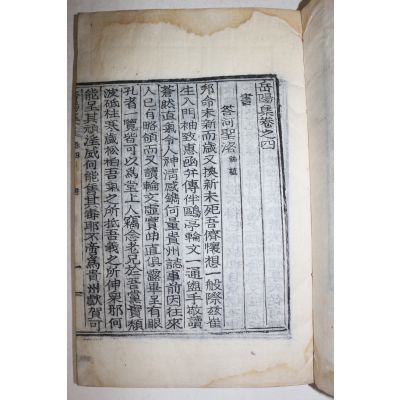 岳陽集卷之四
書
答河聖洛
邦命未新而歲又換新未死吾儕懷想一般際玆崔
生入門袖致惠函幷傳伴鷗亭輪文一通盥手敬讀
蒼然直氣令人神淸感鐫何量貴州誌事前因往來
人已有略領而又讀輪文虛實曲直眞靈畢呈有眼
孔者一覽皆可以爲堂上人竊念老兄於吾黨實頹
波砥柱寒歲松柏吾氣之所抵吾義之所伸渠那何
能呈其頑淫威何能售其毒耶不啻爲貴州獻賀可